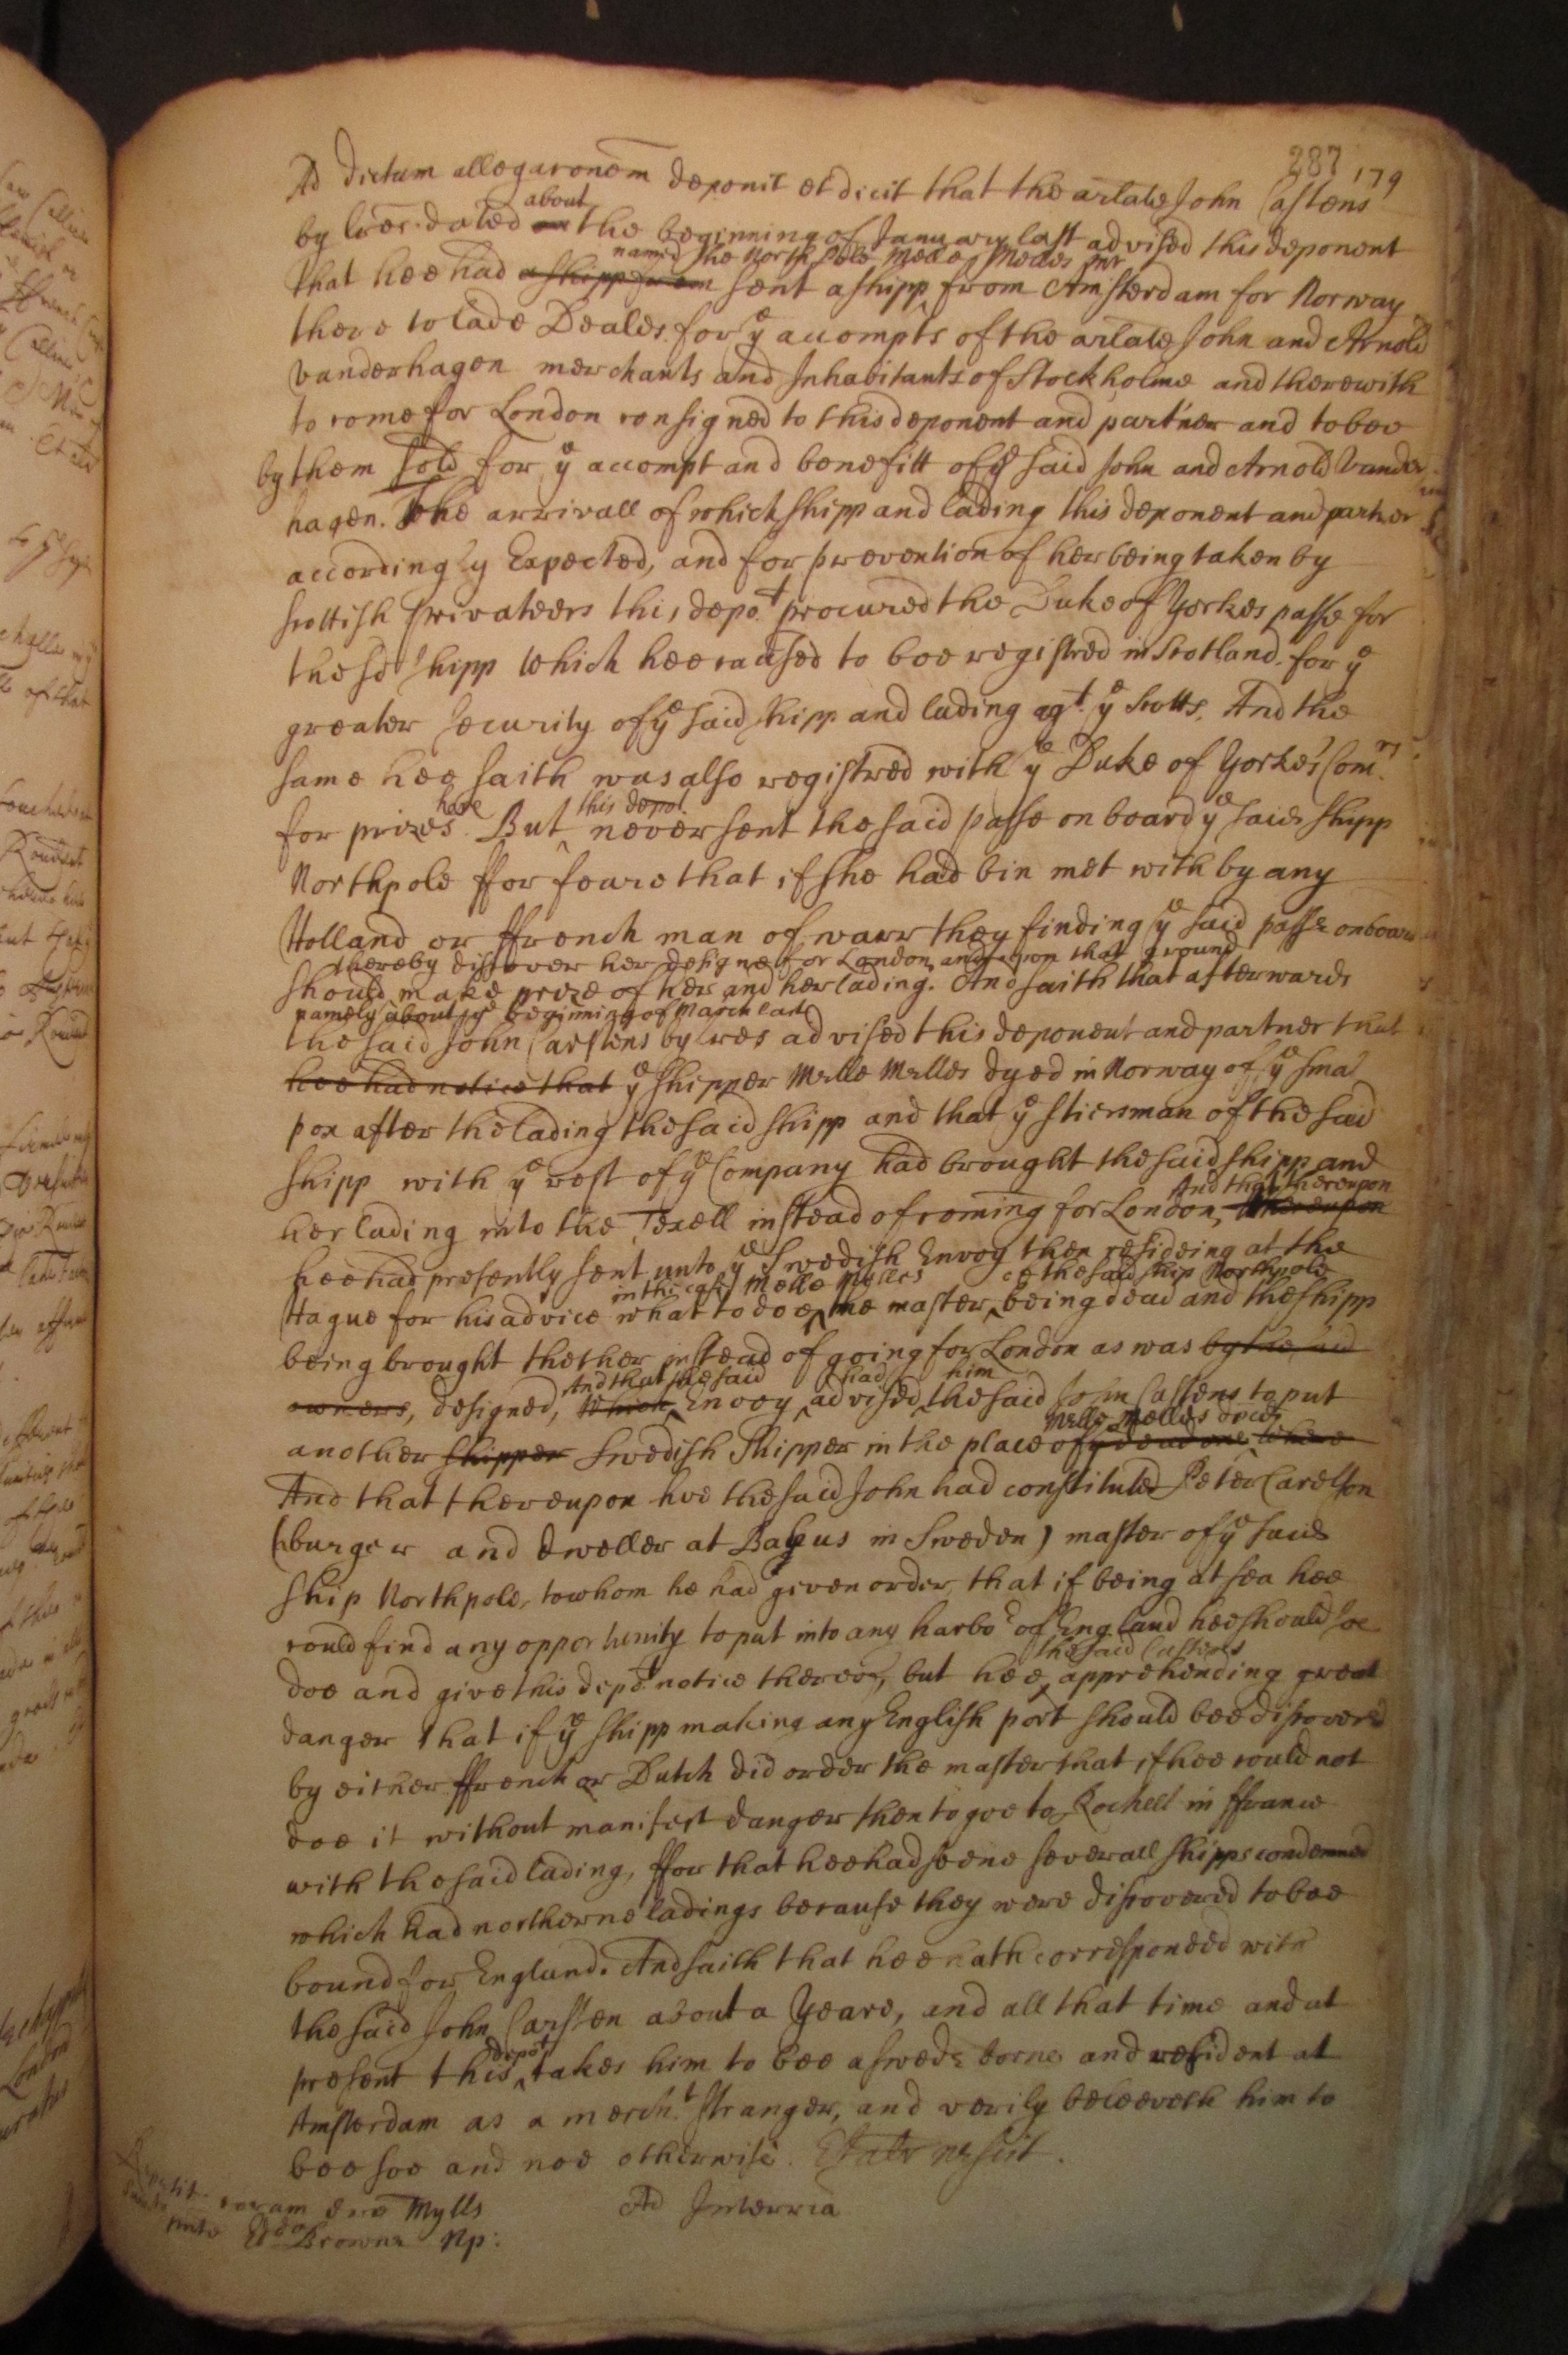 287 179
Ad dictum allegaconem deponit et dicit that the arlate John Castens
about
by lres dated on the beginning of January last advised this deponent
named the North Pole Melle Melles mr
that hee had a shipp from sent a shipp from Amsterdam for Norway
there to lade Deales for ye accompts of the arlate John and Arnold
Vanderhagen merchants and Inhabitants of Stockholme and therewith
to come for London consigned to this deponent and partner and to bee
by them sold for ye accompt and benefitt of ye said John and Arnold Vander
hagen. The arrivall of which shipp and lading this deponent and partner
accordingly Expected, and for prevention of her being taken by
scottish privateers this depot procured the Duke of Yorkes passe for
the sd shipp which hee caused to bee registred in Scotland for ye
greater security of ye said shipp and lading agt ye Scotts, And the
same hee saith was also registred with ye Duke of Yorkes Comrs
here this depot
for prizes. But never sent the said passe on board ye said shipp
Northpole ffor feare that if she had bin met with by any
Holland or ffrench man of warr they finding ye said passe onboard
thereby discover her designe for London and upon that ground
should make prize of her and her lading. And saith that afterwards
namely about ye beginning of March last
the said John Carstens by lres advised this deponent and partner that
hee had notice that ye shipper Melle Melles dyed in Norway of ye smal
pox after the lading the said shipp and that ye stiersman of the said
shipp with ye rest of ye Company had brought the said shipp and
And that thereupon
her lading into the Texell instead of coming for London, Whereupon
hee had presently sent unto ye Swedish Envoy then resideing at the
in this case Melle Melles of the said ship Northpole
Hague for his advice what to doe, the master being dead and the shipp
being brought thether instead of going for London as was by the said
And that the said had him
owners, designed, Which Envoy advised the said John Castens to put
Melle Melles decd
another shipper Swedish Shipper in the place of ye dead one, where
And that thereupon hee the said John had constituted Peter Carelson
(burger and dweller at Bahus in Sweden) master of ye said
ship Northpole, to whom he had given order, that if being at sea hee
could find any opportunity to put into any harbor of England hee should soe
the said Castens
doe and give this depot notice thereof, but hee apprehending great
danger that if ye shipp making any English port should bee discovered
by either ffrench or Dutch did order the master that if hee could not
doe it without manifest danger then to goe to Rochell in ffrance
with the said lading, ffor that hee had seene severall shipps condemned
which had northerne ladings because they were discovered to bee
bound for England. And saith that hee hath corresponded with
the said John Carsten about a Yeare, and all that time and at
depot
present this takes him to bee a swede borne and resident at
Amsterdam as a mercht stranger, and verily beleeveth him to
bee soe and noe otherwise. Et alr nescit.
Ad Interria
coram dno Mylls
Browne Np: